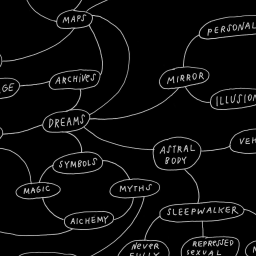 MAPS
PERSONAL
ARCHIVES
MIRROR
GE
ILLUSION
DREAMS
ASTRAL
BODY
VEH
SYMBOLS
MAGIC
MYTHS
ALCHEMY
SLEEPWALKER
NEVER
FULLY
REPRESSED
SEXUAL